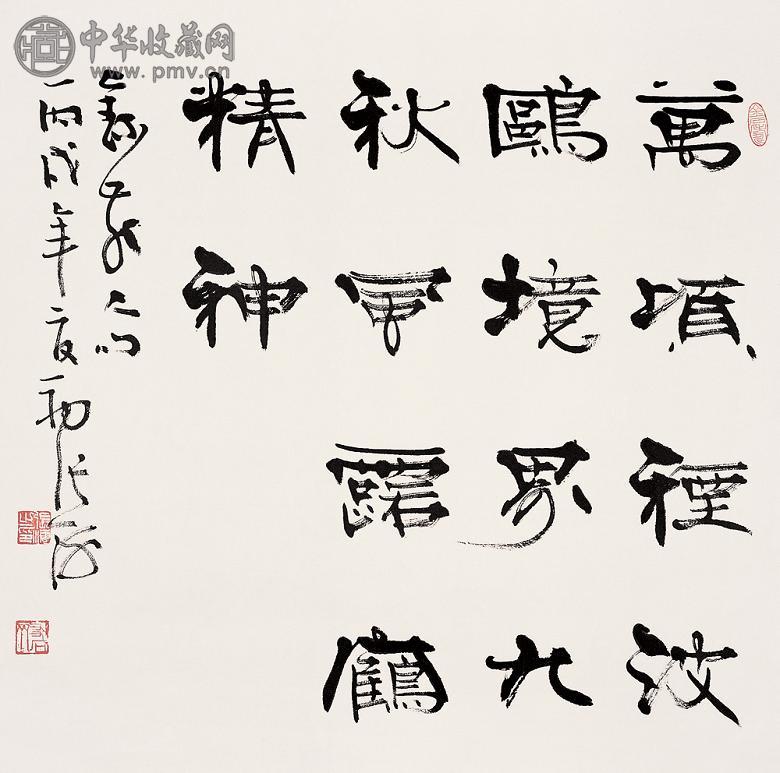 中华收藏网
www.pmv.cn
萬頃煙波
鷗境界九
秋風露鶴
精神
丙戌年夏初張海